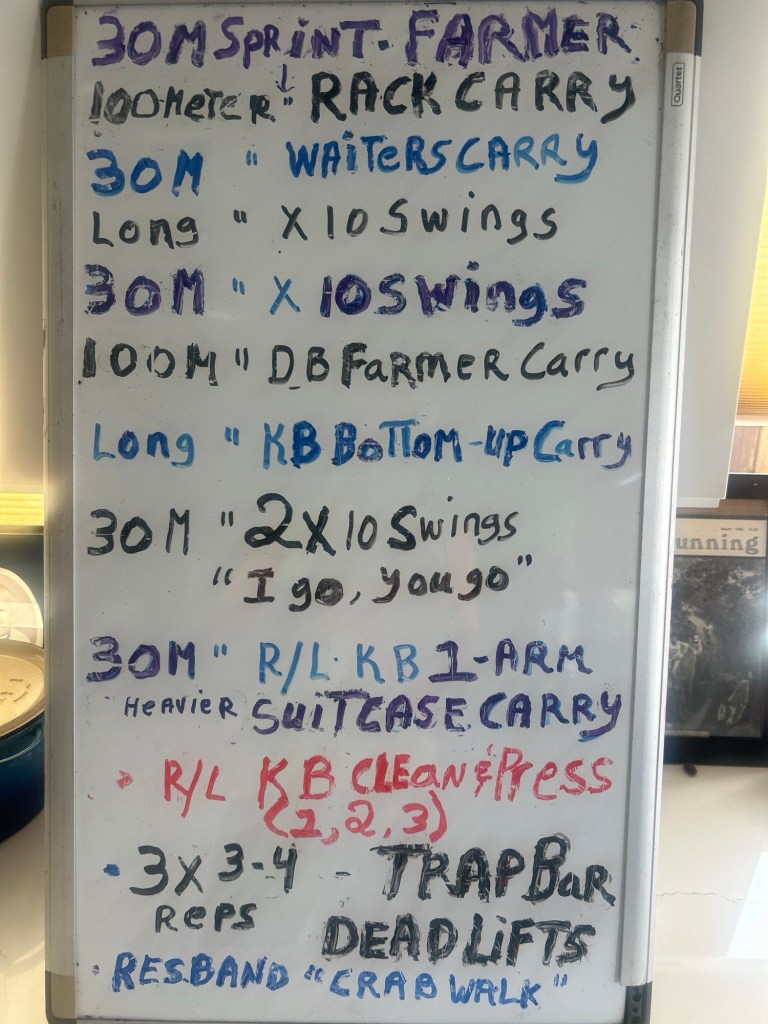 30M SPRINT. FARMER
100METER " RACK CARRY
30M " WAITERS CARRY
Long " X 10 Swings
30M " X 10 Swings
100M " DB FARMER Carry
Long " KB BOTTOM-UP Carry
30M " 2X10 Swings
"I go, you go"
30M " R/L KB 1-ARM
HEAVIER SUITCASE CARRY
R/L KB CLEAN & PRESS
(1, 2, 3)
• 3X 3-4 - TRAP BAR
REPS DEADLIFTS
• RES.BAND "CRAB WALK"
Quartet
unning